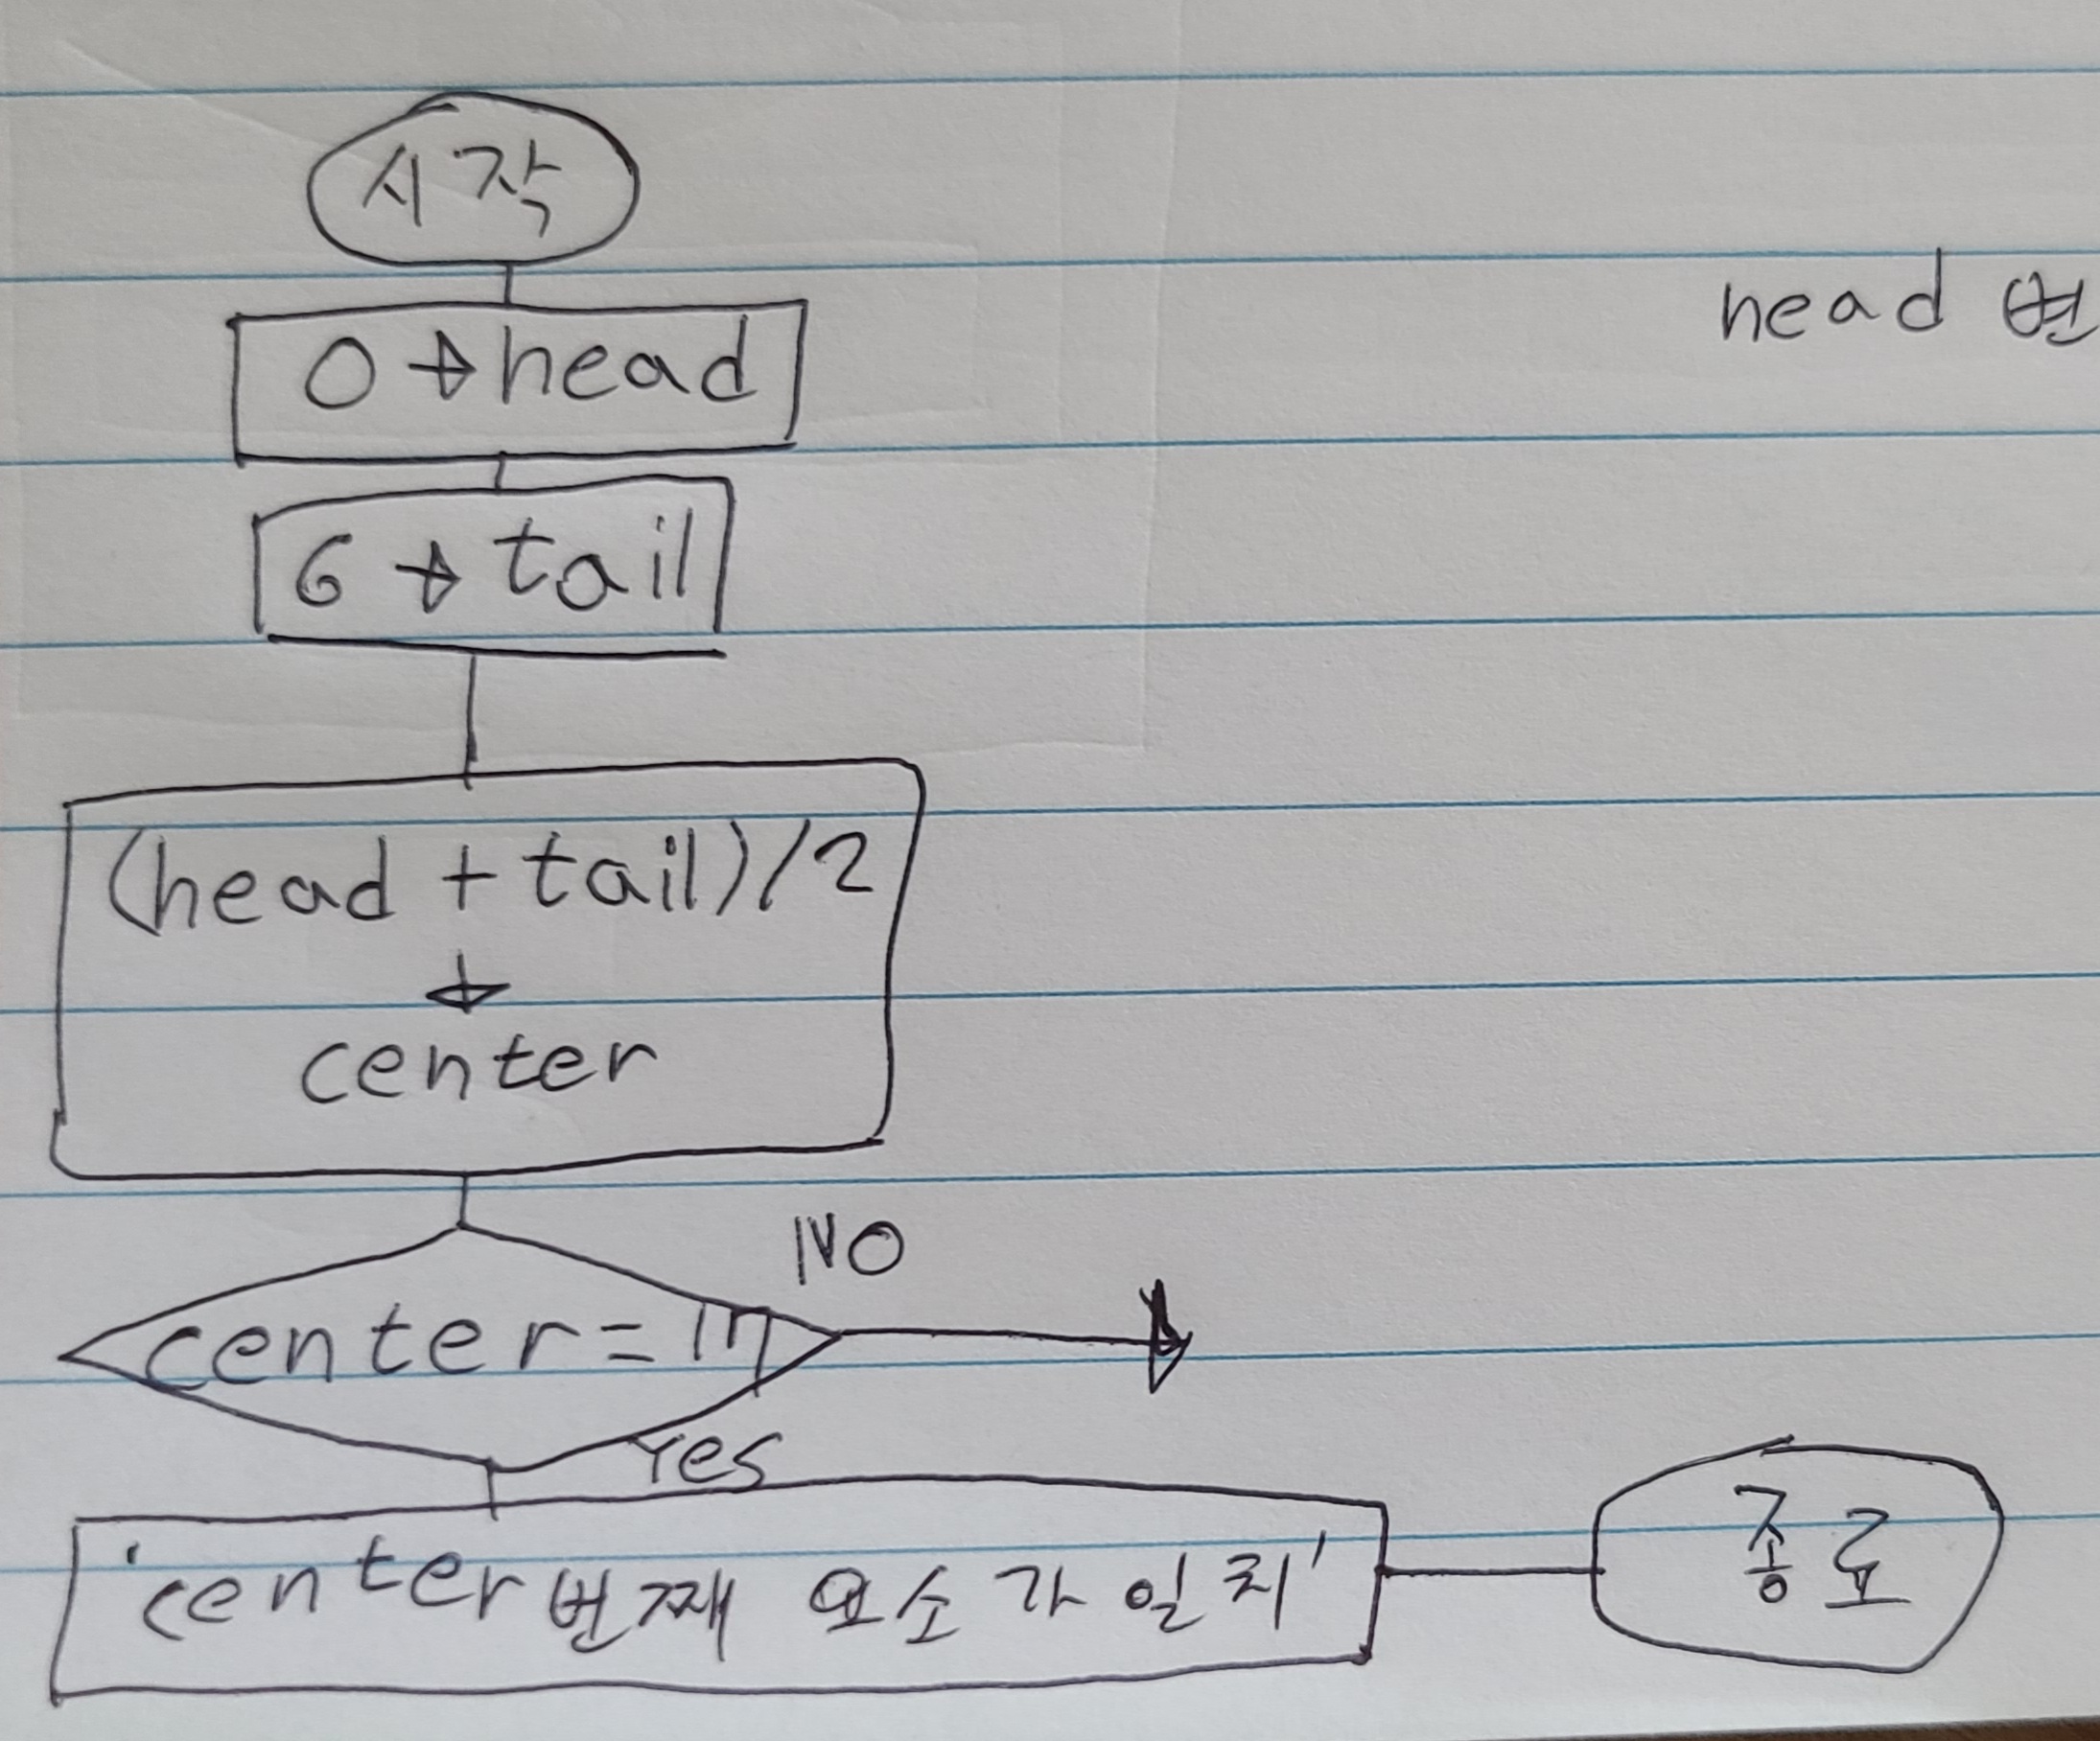 시작
0 → head
head 변
6 → tail
(head + tail)/2
↓
center
NO
center = 17
Yes
'center번째 요소가 일치'
종료